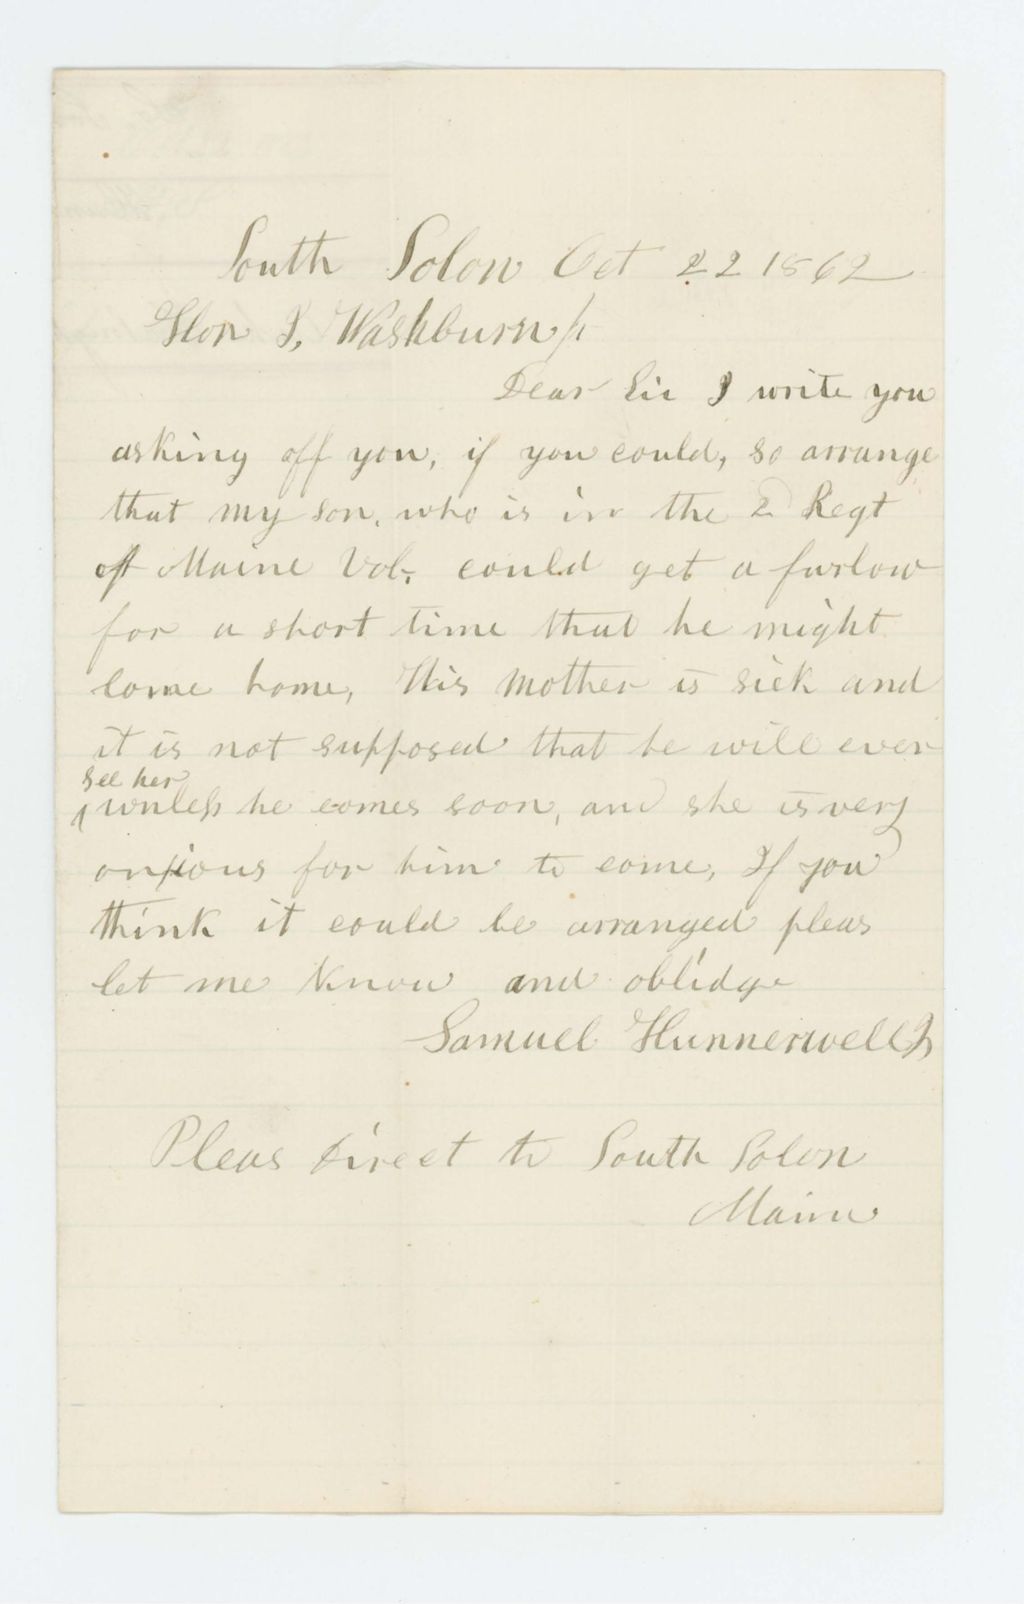 South Solon Oct 22 1862
Hon I, Washburn Jr
Dear Sir I write you
asking off you, if you could, so arrange
that my son, who is in the 2 Regt
off Maine Vol, could get a furlow
for a short time that he might
come home, His mother is sick and
it is not supposed that he will ever
see her
unless he comes soon, and she is very
anxious for him to come, If you
think it could be arranged pleas
let me know and oblidge
Samuel Hunnerwell Jr
Pleas direct to South Solon
Maine